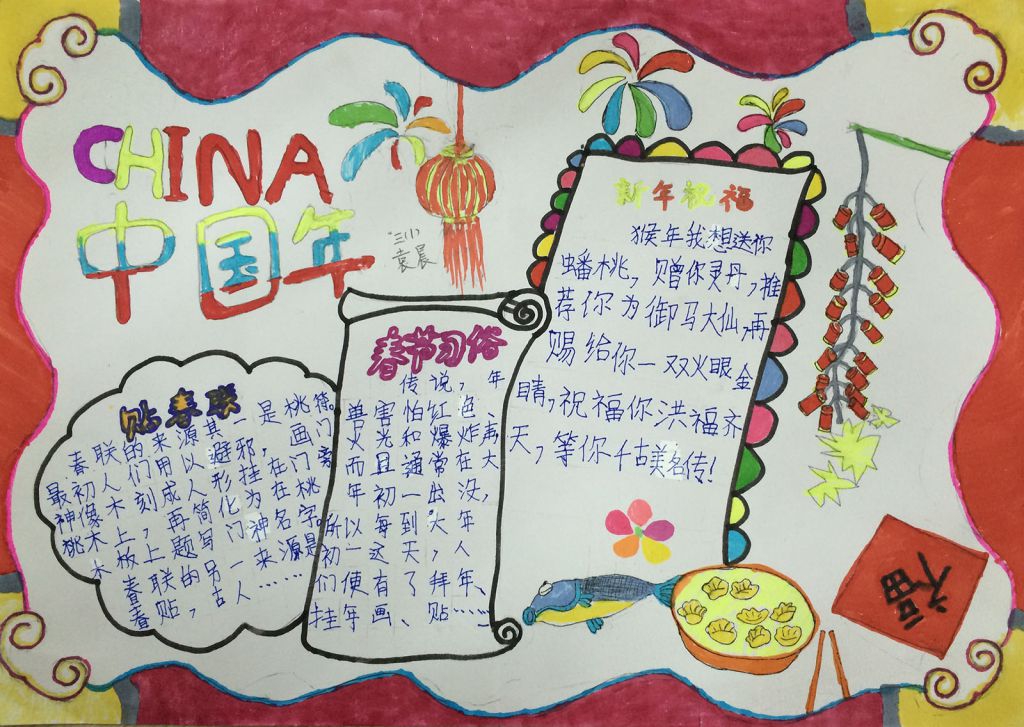 CHINA
中国年
"三小"
袁晨
贴春联
春联的来源其一是桃符。
最初人们用以避邪,画门
神像木刻成人形挂在门旁
桃木上,再简化为在桃
木板上题写门神名字。
春联的另一来源是
春贴,古人……
春节习俗
传说,年
兽害怕红色
火光和爆炸声
而且通常在大
年初一出没,
所以每到大年
初一这天,人
们便有了拜年、
挂年画、贴……
新年祝福
猴年我想送你
蟠桃,赠你灵丹,推
荐你为御马大仙,再
赐给你一双火眼金
睛,祝福你洪福齐
天,等你千古美名传!
福